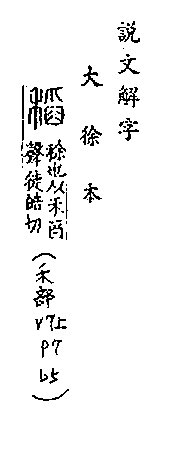 說文解字
大徐本
稻
稌也从禾舀
聲徒皓切
(禾部 V7上 P7 b5)